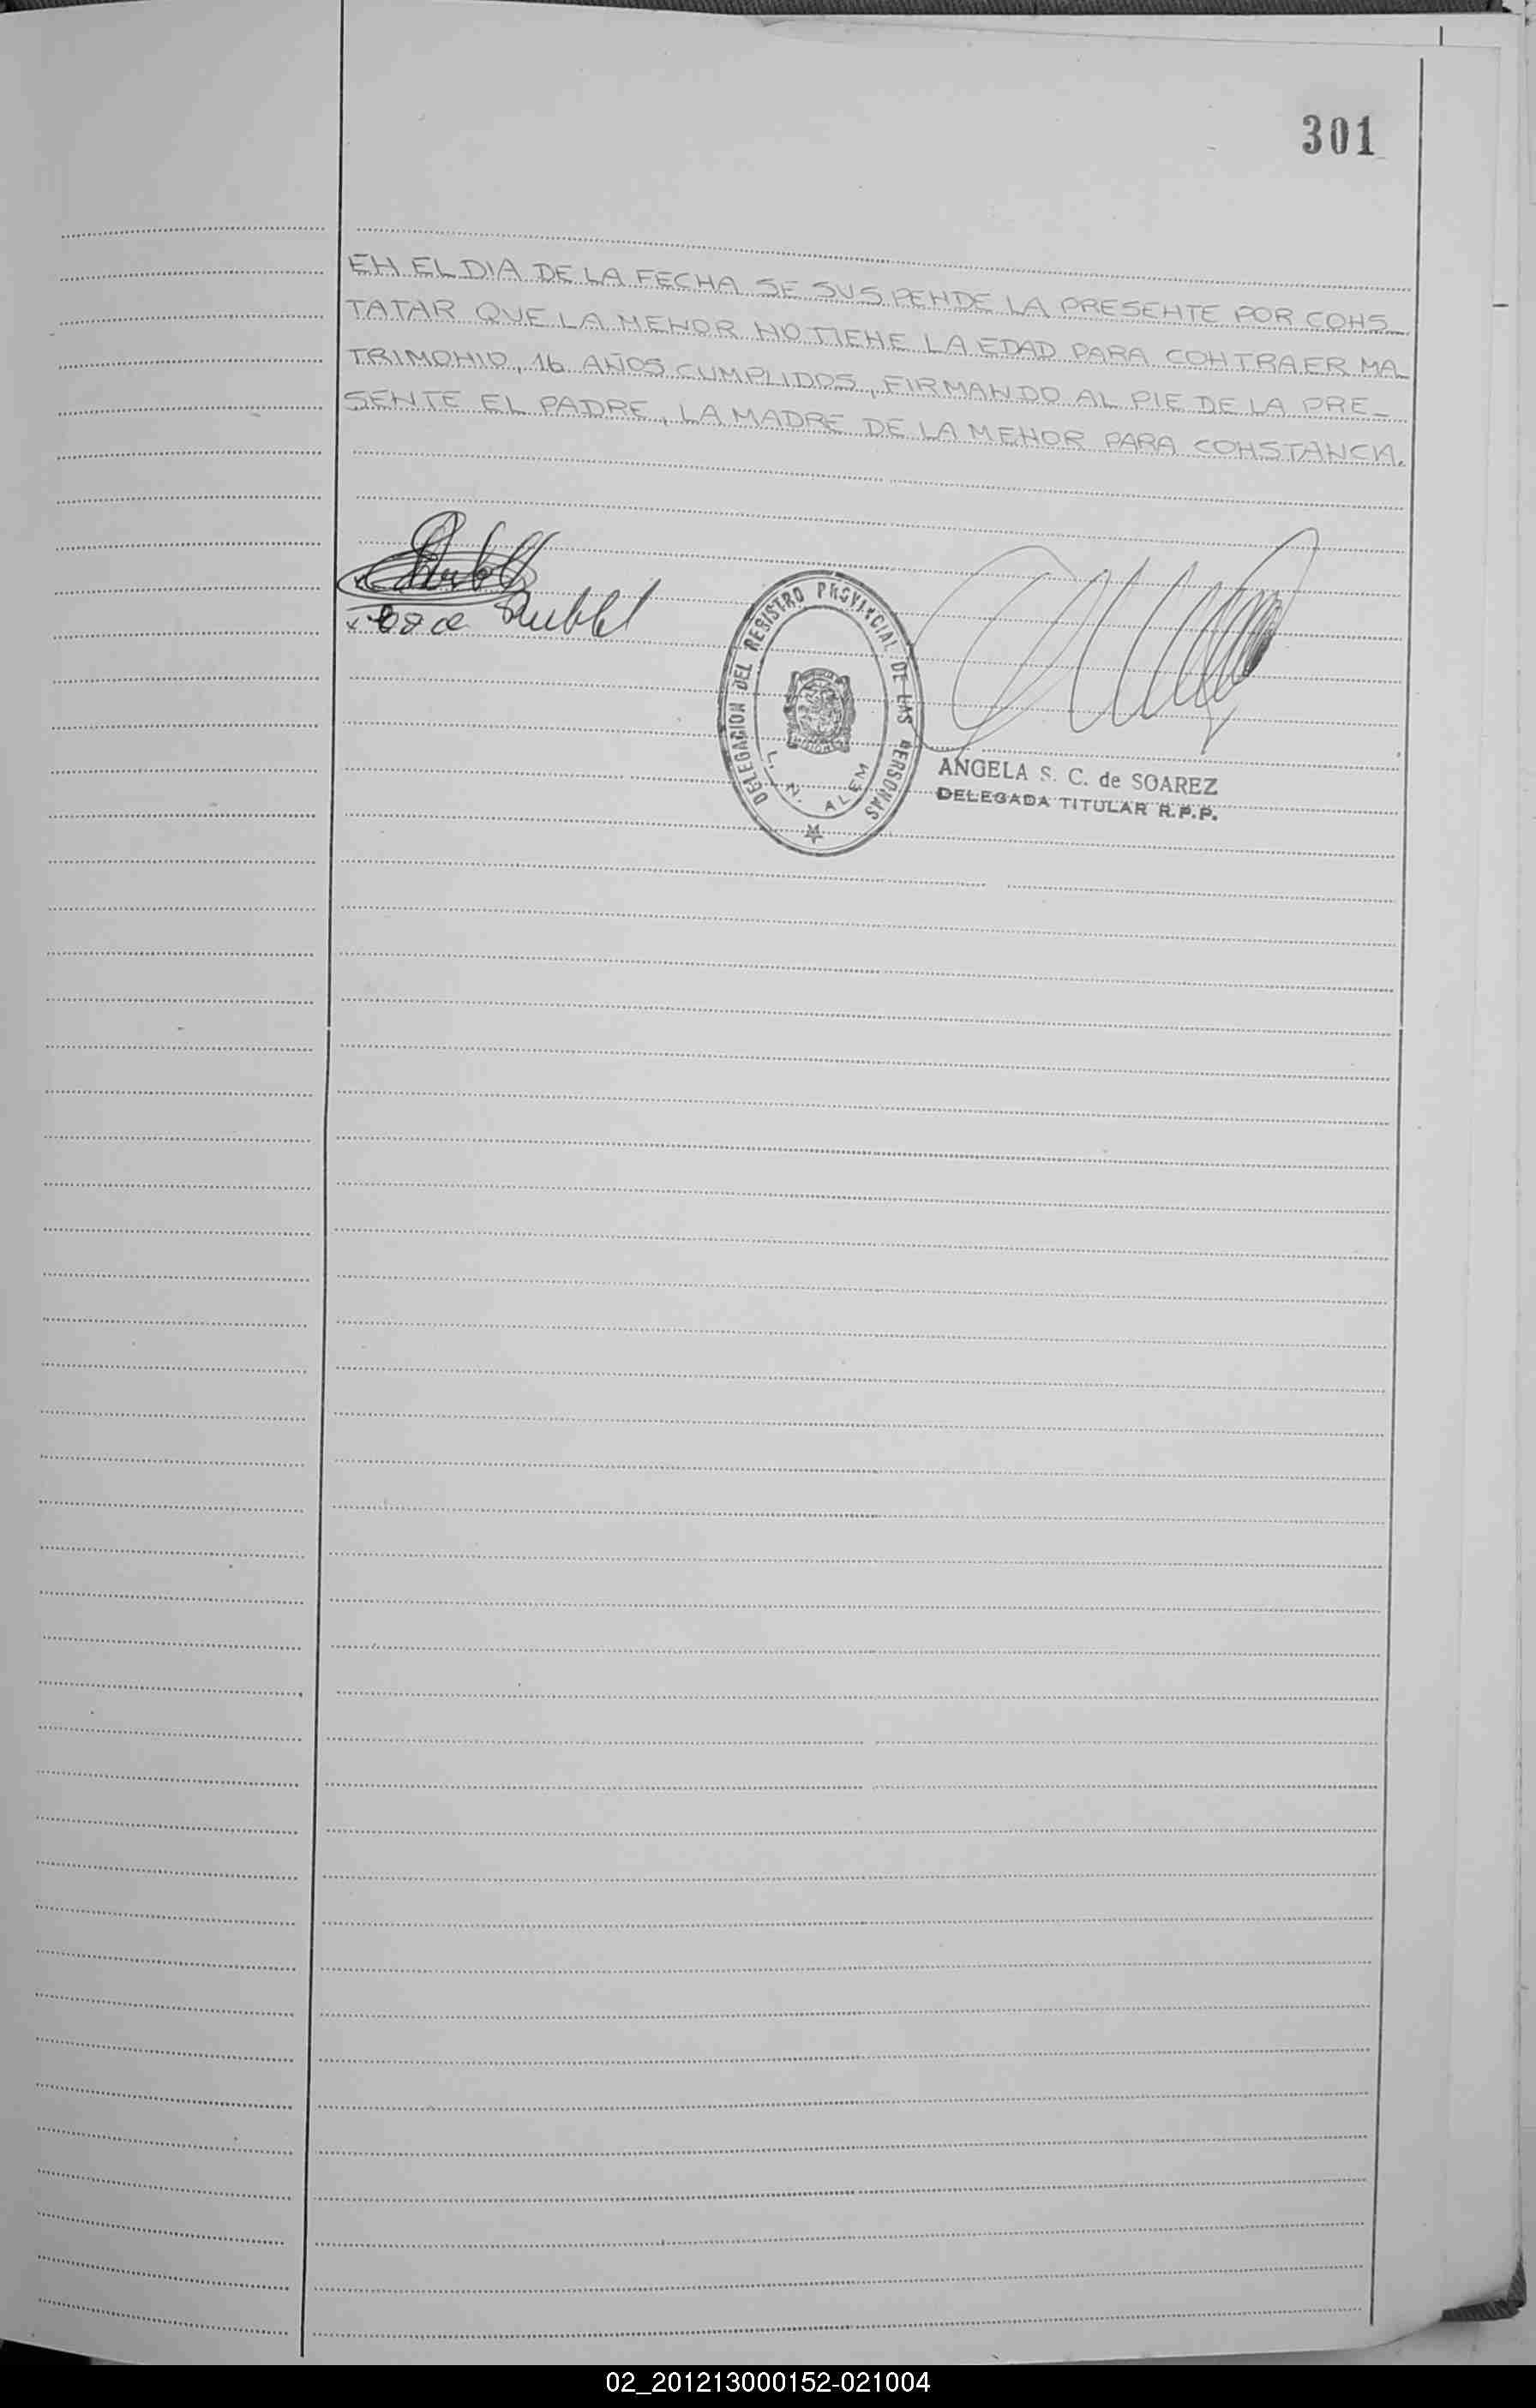 301
EN EL DIA DE LA FECHA SE SUSPENDE LA PRESENTE POR CONS_
TATAR QUE LA MENOR NO TIENE LA EDAD PARA CONTRAER MA_
TRIMONIO, 16 AÑOS CUMPLIDOS, FIRMANDO AL PIE DE LA PRE_
SENTE EL PADRE, LA MADRE DE LA MENOR PARA CONSTANCIA.
DELEGACION DEL REGISTRO PROVINCIAL DE LAS PERSONAS
L. N. ALEM
ANGELA S. C. de SOAREZ
DELEGADA TITULAR R.P.P.
02_201213000152-021004